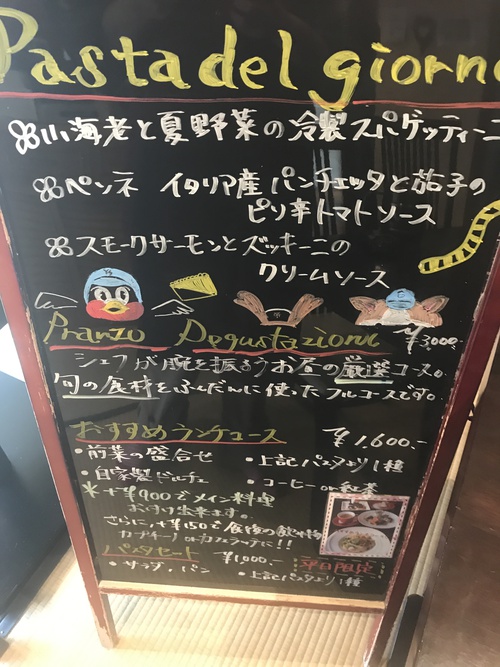 Pasta del giorno
小海老と夏野菜の冷製スパゲッティーニ
ペンネ イタリア産パンチェッタと茄子の
ピリ辛トマトソース
スモークサーモンとズッキーニの
クリームソース
Pranzo Degustazione ¥3,000.-
シェフが腕を振るうお昼の厳選コース。
旬の食材をふんだんに使ったフルコースです。
おすすめランチコース ¥1,600.-
・前菜の盛合せ ・上記パスタより1種
・自家製ドルチェ ・コーヒー or 紅茶
*+¥900でメイン料理
お付け出来ます。
さらに、+¥150で食後の飲み物
カプチーノ or カフェラッテに!!
パスタセット ¥1,000.- 平日限定
・サラダ、パン ・上記パスタより1種